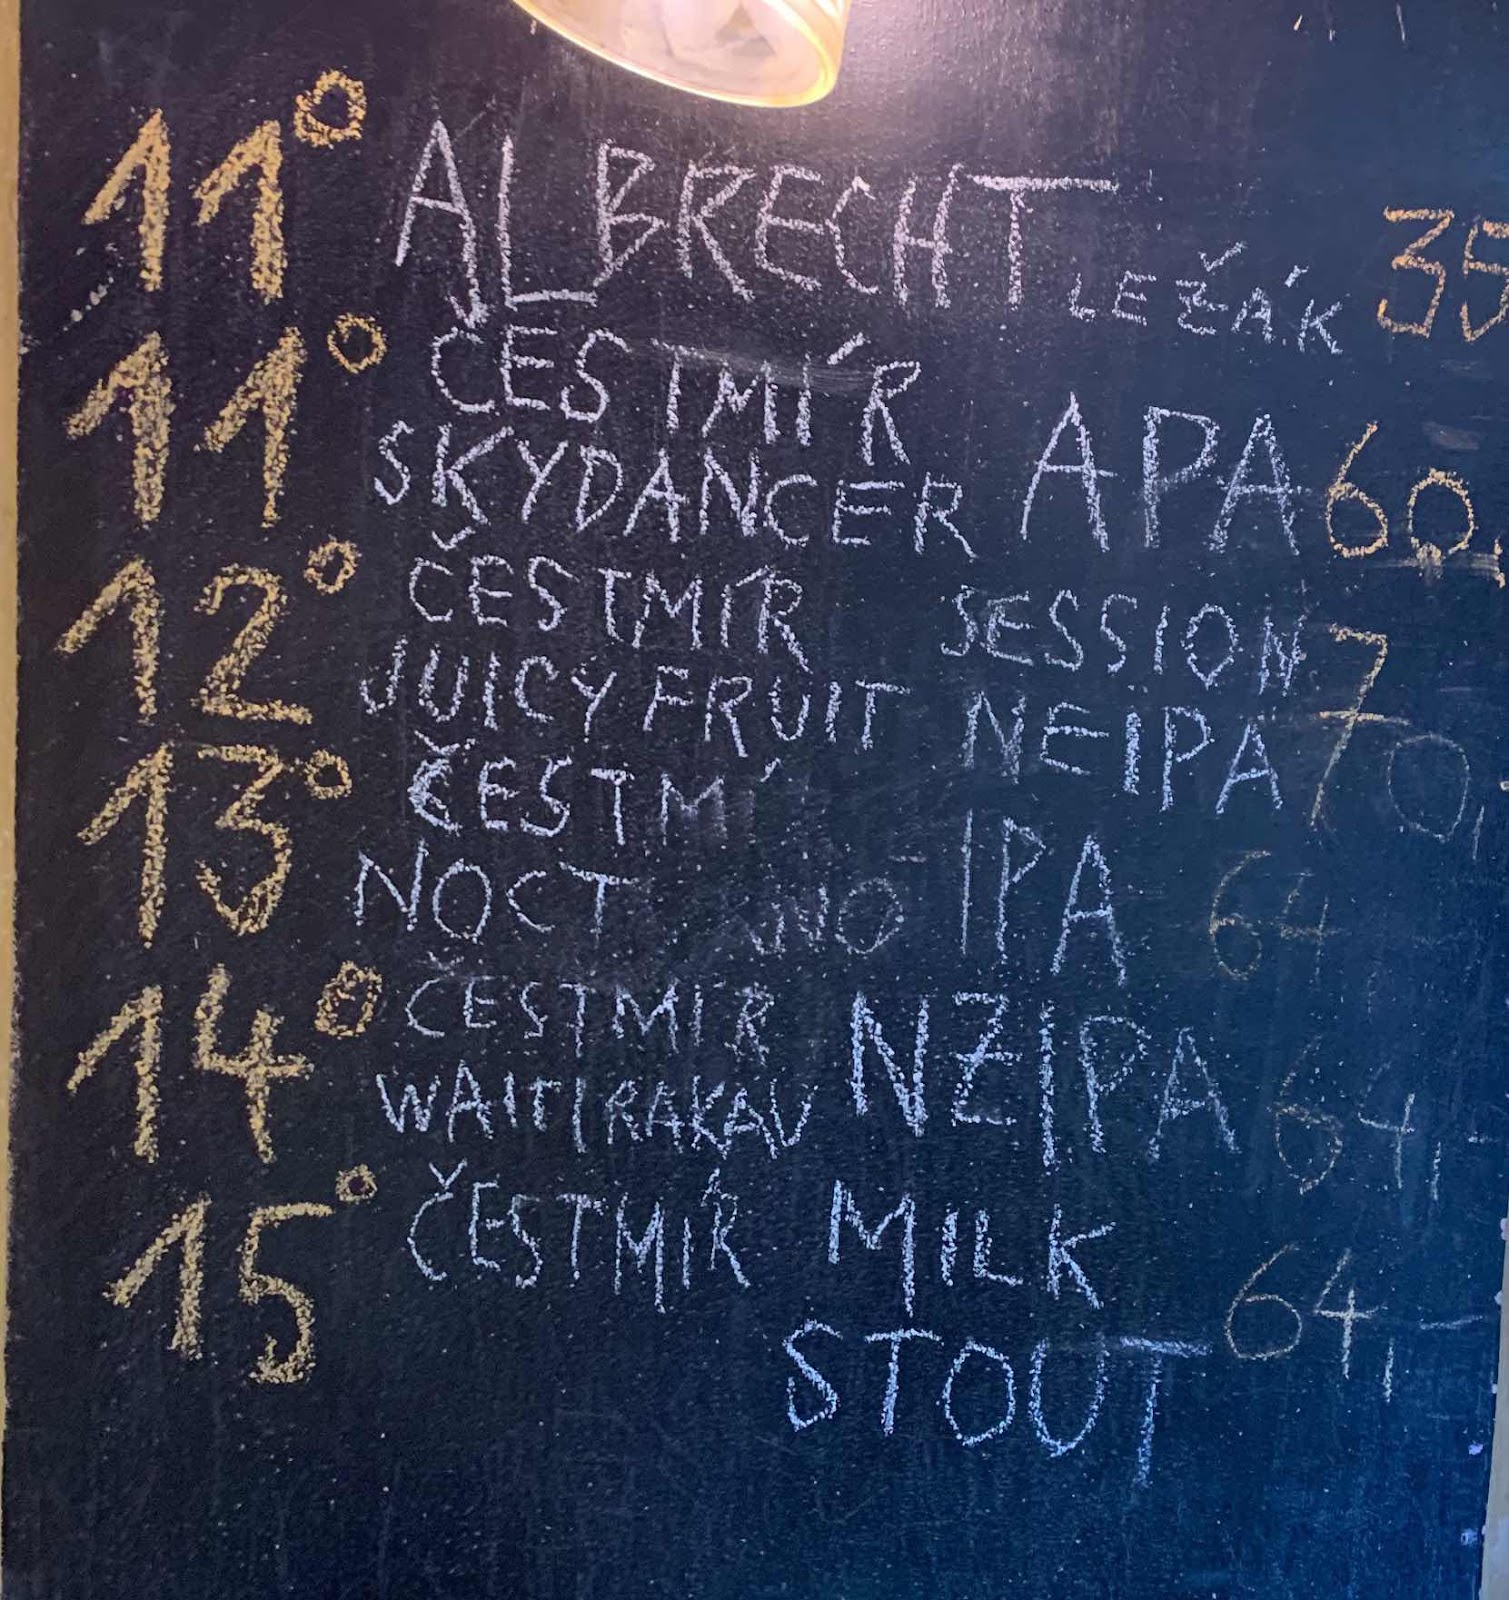 11° ALBRECHT LEŽÁK 35
11° ČESTMÍR
SKYDANCER APA 60,
12° ČESTMÍR SESSION
JUICY FRUIT NEIPA 70,
13° ČESTMÍ
NOCT IPA 64
14° ČESTMÍR NZIPA
WAITIRAKAU 64,-
15° ČESTMÍR MILK
STOUT 64,-